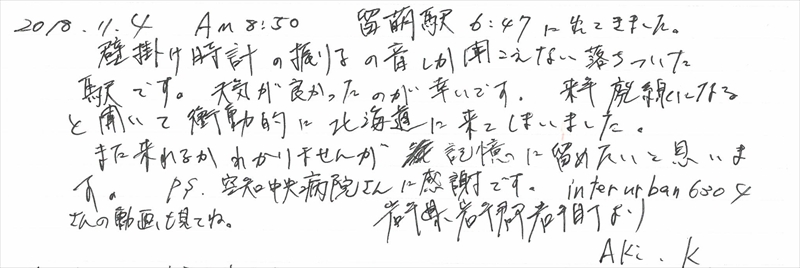 2018.11.4 Am 8:50 留萌駅 6:47に出てきました。
壁掛け時計の振り子の音しか聞こえない落ちついた
駅です。天気が良かったのが幸いです。来年廃線になる
と聞いて衝動的に北海道に来てしまいました。
また来れるかわかりませんが 記憶に留めたいと思いま
す。 PS. 空知中央病院さんに感謝です。 interurban6304
さんの動画も見てね。 岩手県岩手郡岩手町より
Aki.K